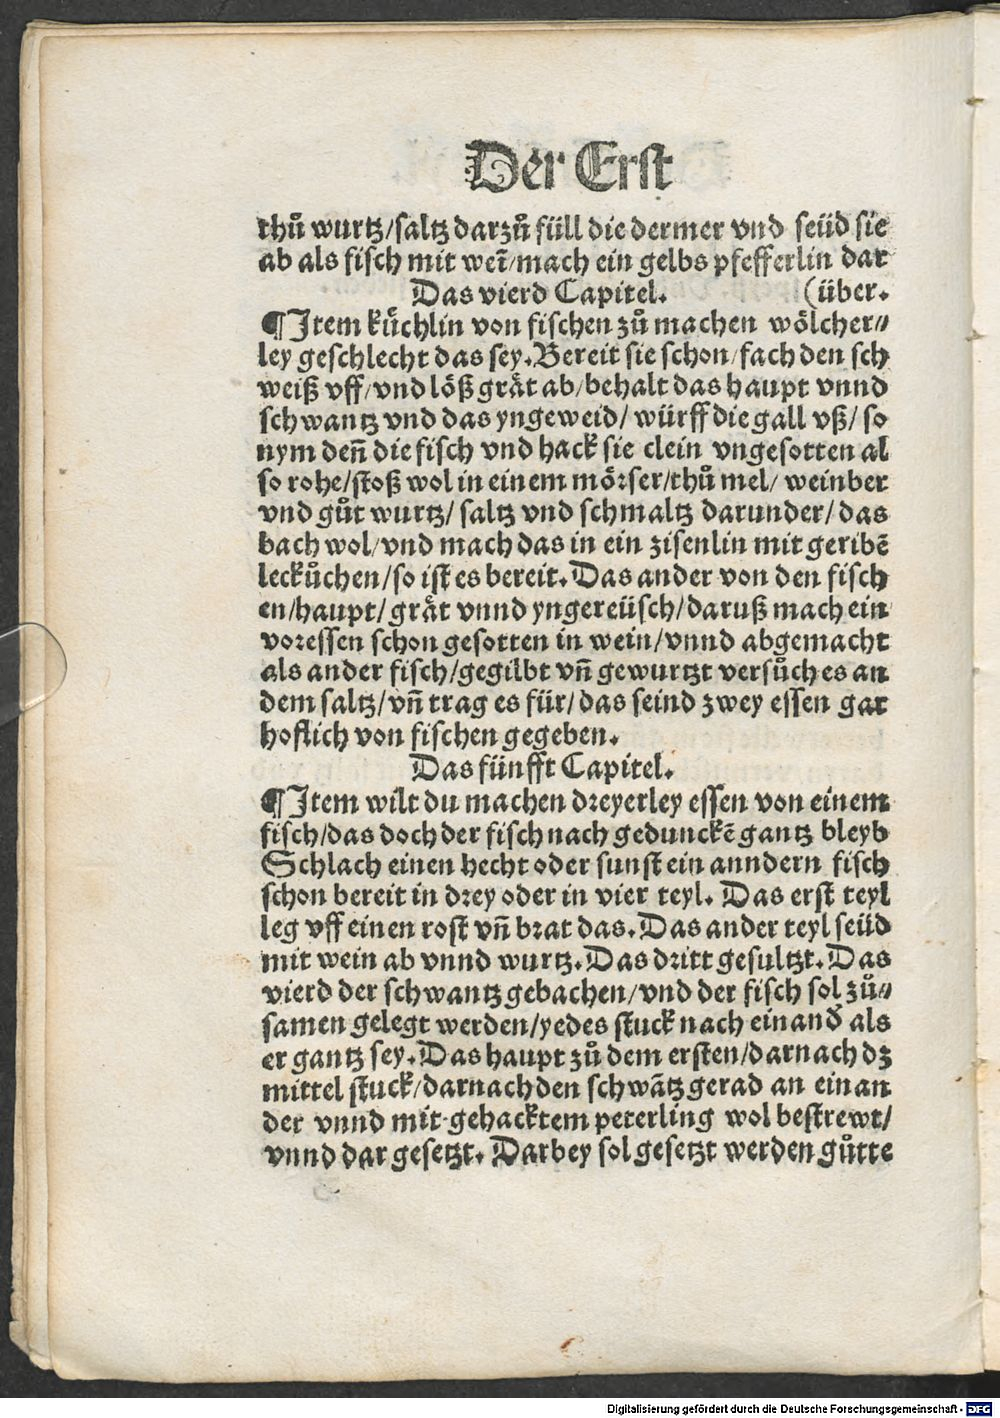 Der Erst
thuͦ wurtz/saltz darzuͦ füll die dermer vnd seüd sie
ab als fisch mit weī/mach ein gelbs pfefferlin dar
Das vierd Capitel. (über.
¶ Item kuͤchlin von fischen zuͦ machen woͤlcher⸗
ley geschlecht das sey. Bereit sie schon/fach den sch
weiß vff/vnd loͤß graͤt ab/behalt das haupt vnnd
schwantz vnd das yngeweid/ würff die gall vß/ so
nym den̄ die fisch vnd hack sie clein vngesotten al
so rohe/stoß wol in einem moͤrser/thuͦ mel/ weinber
vnd guͦt wurtz/ saltz vnd schmaltz darunder/ das
bach wol/vnd mach das in ein zisenlin mit geribē
leckuͦchen/so ist es bereit. Das ander von den fisch
en/haupt/ graͤt vnnd yngereüsch/daruß mach ein
voressen schon gesotten in wein/vnnd abgemacht
als ander fisch/gegilbt vn̄ gewurtzt versuͦch es an
dem saltz/vn̄ trag es für/ das seind zwey essen gar
hoflich von fischen gegeben.
Das fünfft Capitel.
¶ Item wilt du machen dreyerley essen von einem
fisch/das doch der fisch nach gedunckē gantz bleyb
Schlach einen hecht oder sunst ein anndern fisch
schon bereit in drey oder in vier teyl. Das erst teyl
leg vff einen rost vn̄ brat das. Das ander teyl seüd
mit wein ab vnnd wurtz. Das dritt gesultzt. Das
vierd der schwantz gebachen/vnd der fisch sol zuͦ⸗
samen gelegt werden/yedes stuck nach einand̕ als
er gantz sey. Das haupt zuͦ dem ersten/darnach dz
mittel stuck/darnach den schwātz gerad an einan
der vnnd mit gehacktem peterling wol bestrewt/
vnnd dar gesetzt. Darbey sol gesetzt werden guͦtte
Digitalisierung gefördert durch die Deutsche Forschungsgemeinschaft - DFG